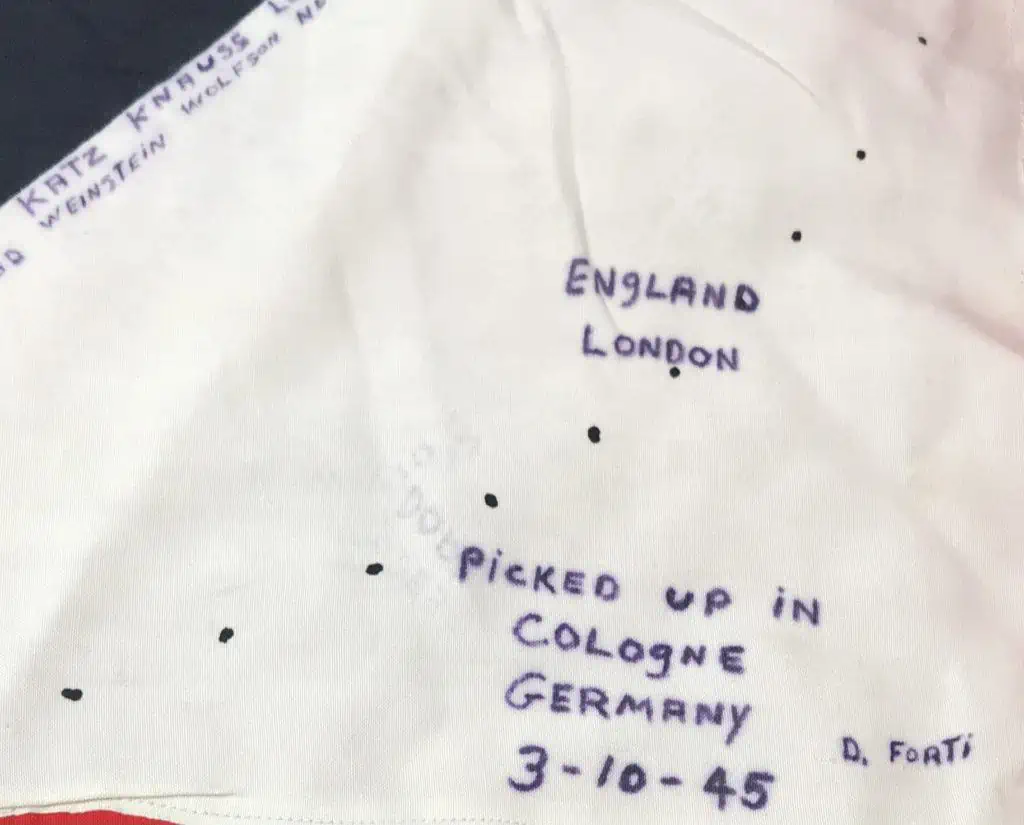 KATZ KNAUSS
WEINSTEIN WOLFSON
ENgLAND
LONDON
PiCKED UP iN
COLOgNE
GERMANY
3-10-45
D. FORTi